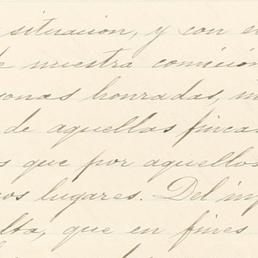 situacion, y con e
e nuestra comicion
sonas honradas, m
de aquellas finca
s que por aquellos
os lugares. Del in
lta, que en fines